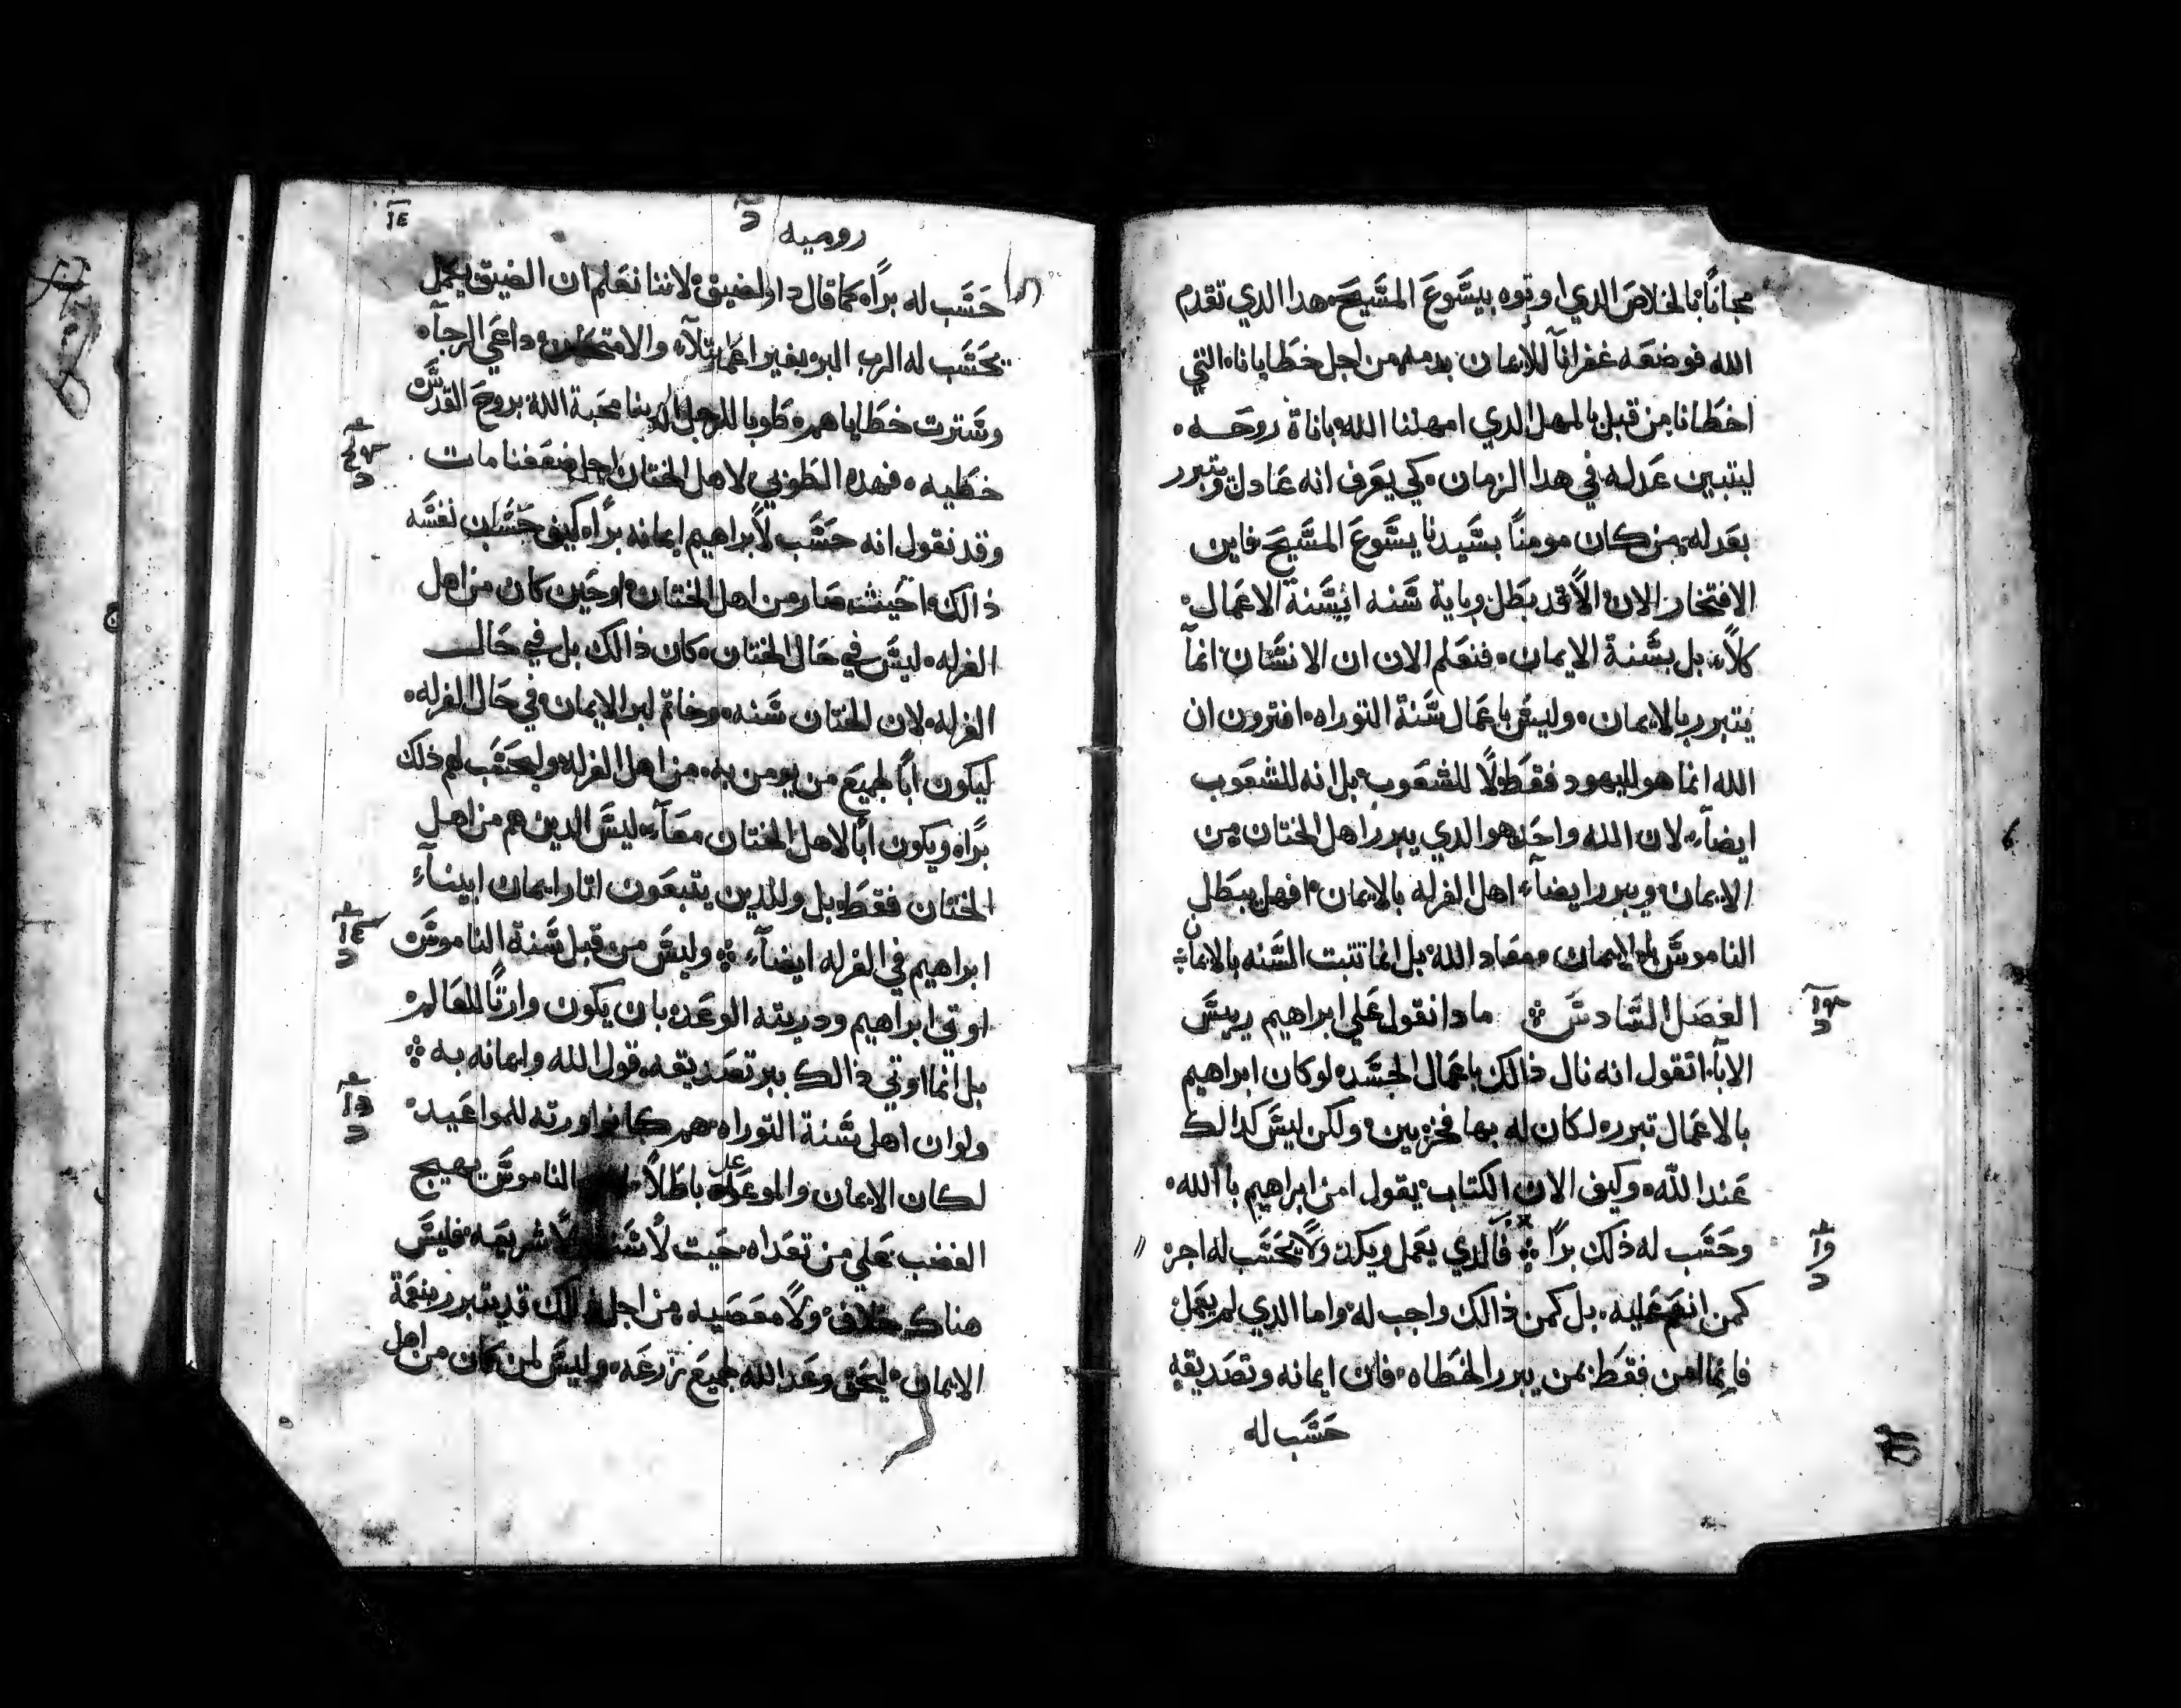 مجاناً بالخلاص الدي اوتوه بيسَّوعَ المسَّيحَ هدا الدي تقدم
الله فوضعَه غفراناً للايمان بدمه من اجل خطَايانا التي
اخطَانا من قبل بالمهل الدي امهلنا الله باناة روحَه
ليتبين عَدله في هدا الزمان كي يعَرف انه عَادل ويتبرر
بعَدله من كان مومناً بسَّيدنا يسَّوعَ المسَّيحَ فاين
الافتخار الان الاَّ قد بطَل وباية سَّنه ابسَّنة الاعَمال
كلاَّ بل بسَّنة الايمان فنعَلم الان ان الانسَّان انما
يتبرر بالايمان وليسَّ باعَمال سَّنة التوراه افترون ان
الله انما هو لليهود فقطَ ولاَ للشعَوب بل انه للشعَوب
ايضاً لان الله واحَد هو الدي يبرر اهل الختان من
الايمان ويبرر ايضاً اهل الغرله بالايمان افهل يبطَل
الناموسَّ بالايمان معَاد الله بل انما تتبت السَّنه بالايمان
الفصَل السَّادسَّ مادا نقول عَلي ابراهيم رييسَّ
الابا اتقول انه نال ذالك باعَمال الجسَّد لو كان ابراهيم
بالاعَمال تبرر لكان له بها فخر بين ولكن ليسَّ كدالك
عَند الله وكيف الان الكتاب يقول امن ابراهيم باالله
وحَسَّب له ذلك براً فالدي يعَمل ويكد ولاَ يحَسَّب له اجر
كمن انعَم عَليه بل كمن ذالك واجب له واما الدي لم يعَمل
فانما امن فقطَ بمن يبرر الخطَاه فان ايمانه وتصَديقه
حَسَّب له
روميه
حَسَّب له براً كما قال داو الضيق لاننا نعَلم ان الضيق يكمل
يحَسَّب له الرب البر بغير اعَمال والامتحان داعَي الرجا
وسَّترت خطَاياهم طَوبا للرجل محَبة الله بروحَ القدسَّ
خطَيه فهده الطَوبي لاهل الختان اجل ضعَفنا مات
وقد نقول انه حَسَّب لاَبراهيم ايمانه براً كيف حَسَّب نفسَّه
ذالك احَيث صَار من اهل الختان او حَين كان من اهل
الغرله ليسَّ في حَال الختان كان ذالك بل في حَال
الغرله لان الختان سَّنه وخاتم لبر الايمان في حَال الغرله
ليكون اباً لجميعَ من يومن به من اهل الغرله وليحَسَّب لهم ذلك
براً ويكون اباً لاهل الختان معَاً ليسَّ الدين هم من اهل
الختان فقطَ بل وللدين يتبعَون اتار ايمان ابيناً
ابراهيم في الغرله ايضاً وليسَّ من قبل سَّنة الناموسَّ
اوتي ابراهيم ودريته الوعَد بان يكون وارتاً للعَالم
بل انما اوتي ذالك ببر تصَديقه قول الله وايمانه به
ولو ان اهل سَّنة التوراه هم كانوا ورته للمواعَيد
لكان الايمان والموعَد باطَلاً الناموسَّ يهيج
الغضب عَلي من تعَداه حَيت لاَ سَّنه ولاَ شريعَه فليسَّ
هناك خلاف ولاَ معَصَيه من اجل ذلك قد يتبرر بنعَمة
الايمان ليحَق وعَد الله لجميعَ زرعَه وليسَّ لمن كان من اهل